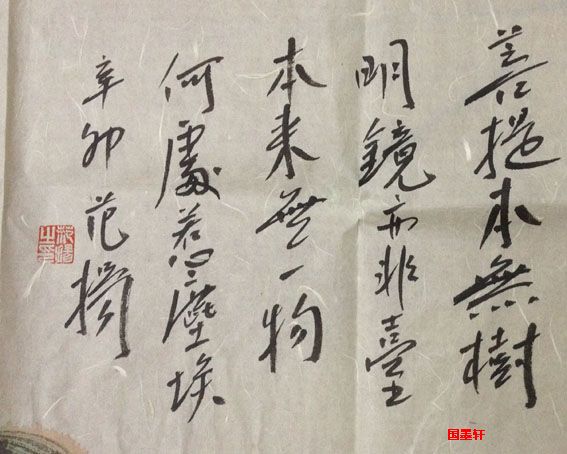 菩提本無樹
明鏡亦非臺
本来無一物
何處惹塵埃
辛卯 范揚
范揚之印
国墨轩